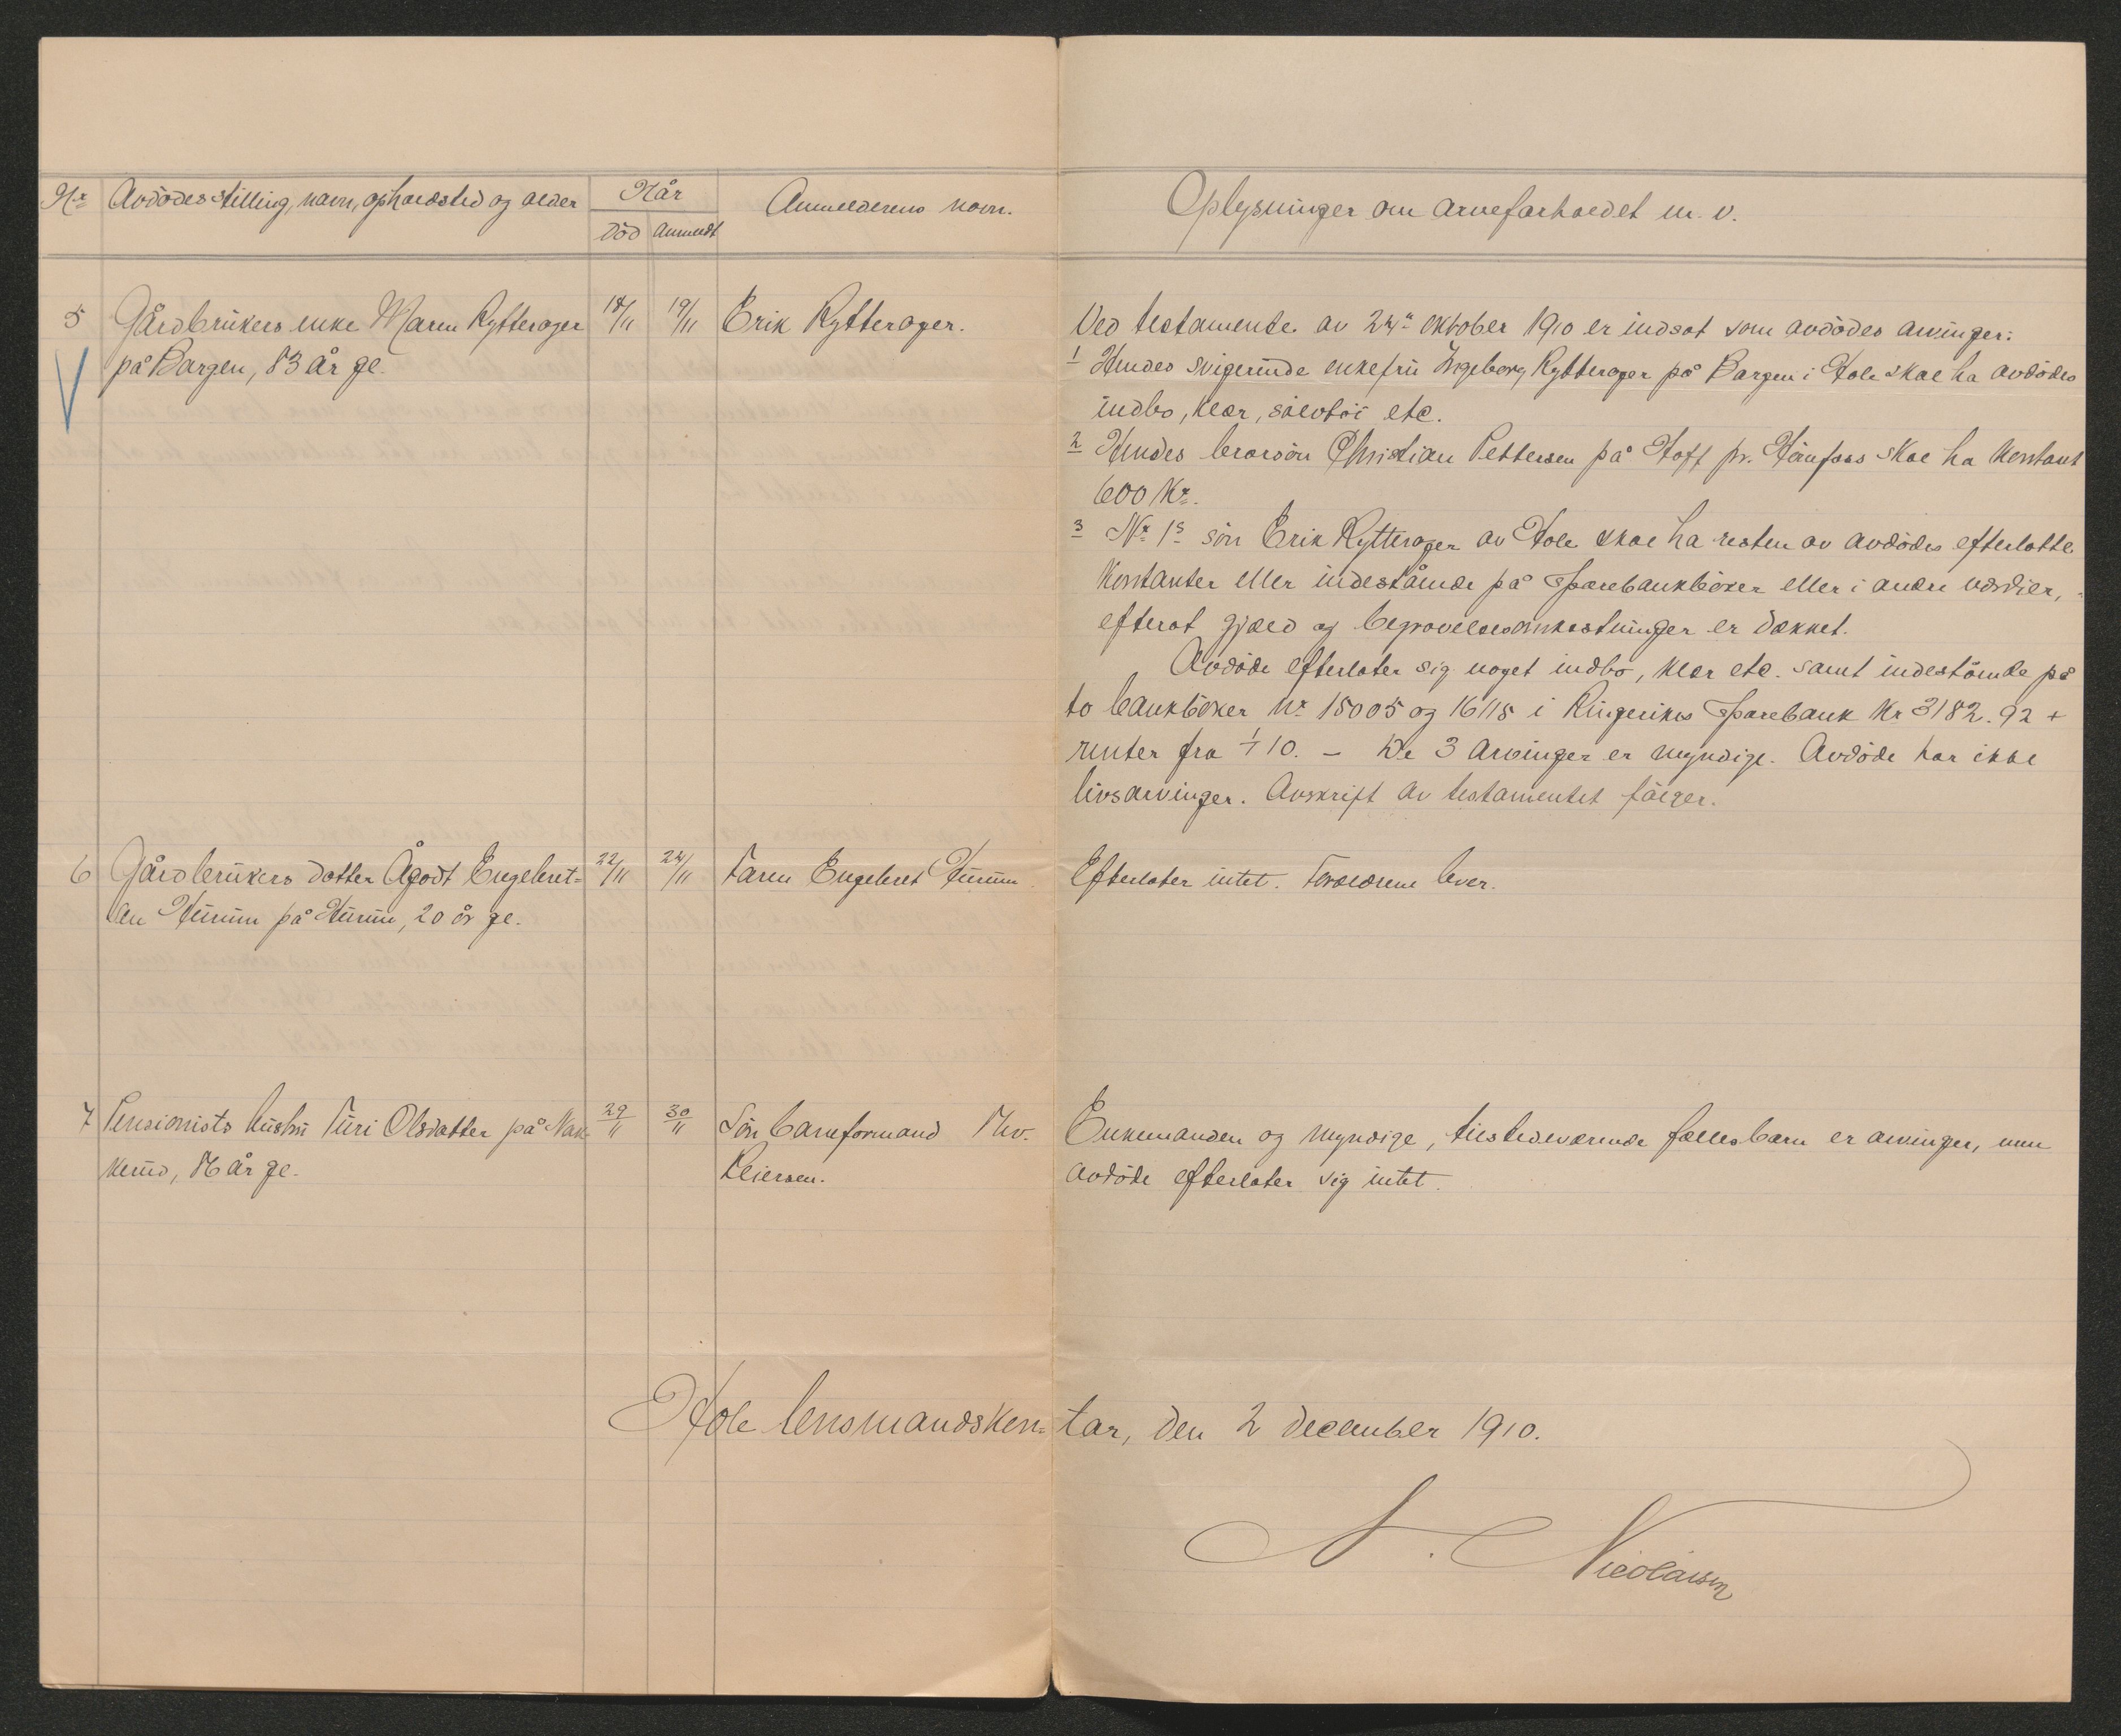 Nr Avdödes stilling, navn, opholdsted og alder Når Anmelderens navn. Oplysninger om arveforholdet m. v.
Död Anmeldt
5 Gårdbrukers enke Maren Rytterager 18/11 19/11 Erik Rytterager.
på Borgen, 83 år gl.
Ved testamente av 24de oktober 1910 er indsat som avdödes arvinger:
1 Hendes svigerinde enkefru Ingeborg Rytterager på Borgen i Hole skal ha avdödes
indbo, klær, sölvtöi etc.
2 Hendes brorsön Christian Pettersen på Hoff pr. Hönefoss skal ha kontant
600 Kr.
3 Nr 1s sön Erik Rytterager av Hole skal ha resten av avdödes efterlatte
kontanter eller indestående på Sparebankböker eller i andre værdier,
efterat gjæld og begravelsesomkostninger er dækket.
Avdöde efterlater sig noget indbo, klær etc. samt indestående på
to bankböker Nr 15005 og 16115 i Ringerikes Sparebank Kr 3182.92 +
renter fra 1/1 10. – De 3 arvinger er myndige. Avdöde har ikke
livsarvinger. Avskrift av testamentet fölger.
6 Gårdbrukers datter Ågodt Engebret- 22/11 24/11 Faren Engebret Hurum Efterlater intet. Forældrene lever.
sen Hurum på Hurum, 20 år gl.
7 Pensionists hustru Turi Olsdatter på Nak- 29/11 30/11 Sön baneformand Thv. Enkemanden og myndige, tilstedeværende fællesbarn er arvinger, men
kerud, 76 år gl. Reiersen. avdöde efterlater sig intet.
Hole lensmandskon- tor, den 2 december 1910.
N. Nicolaisen